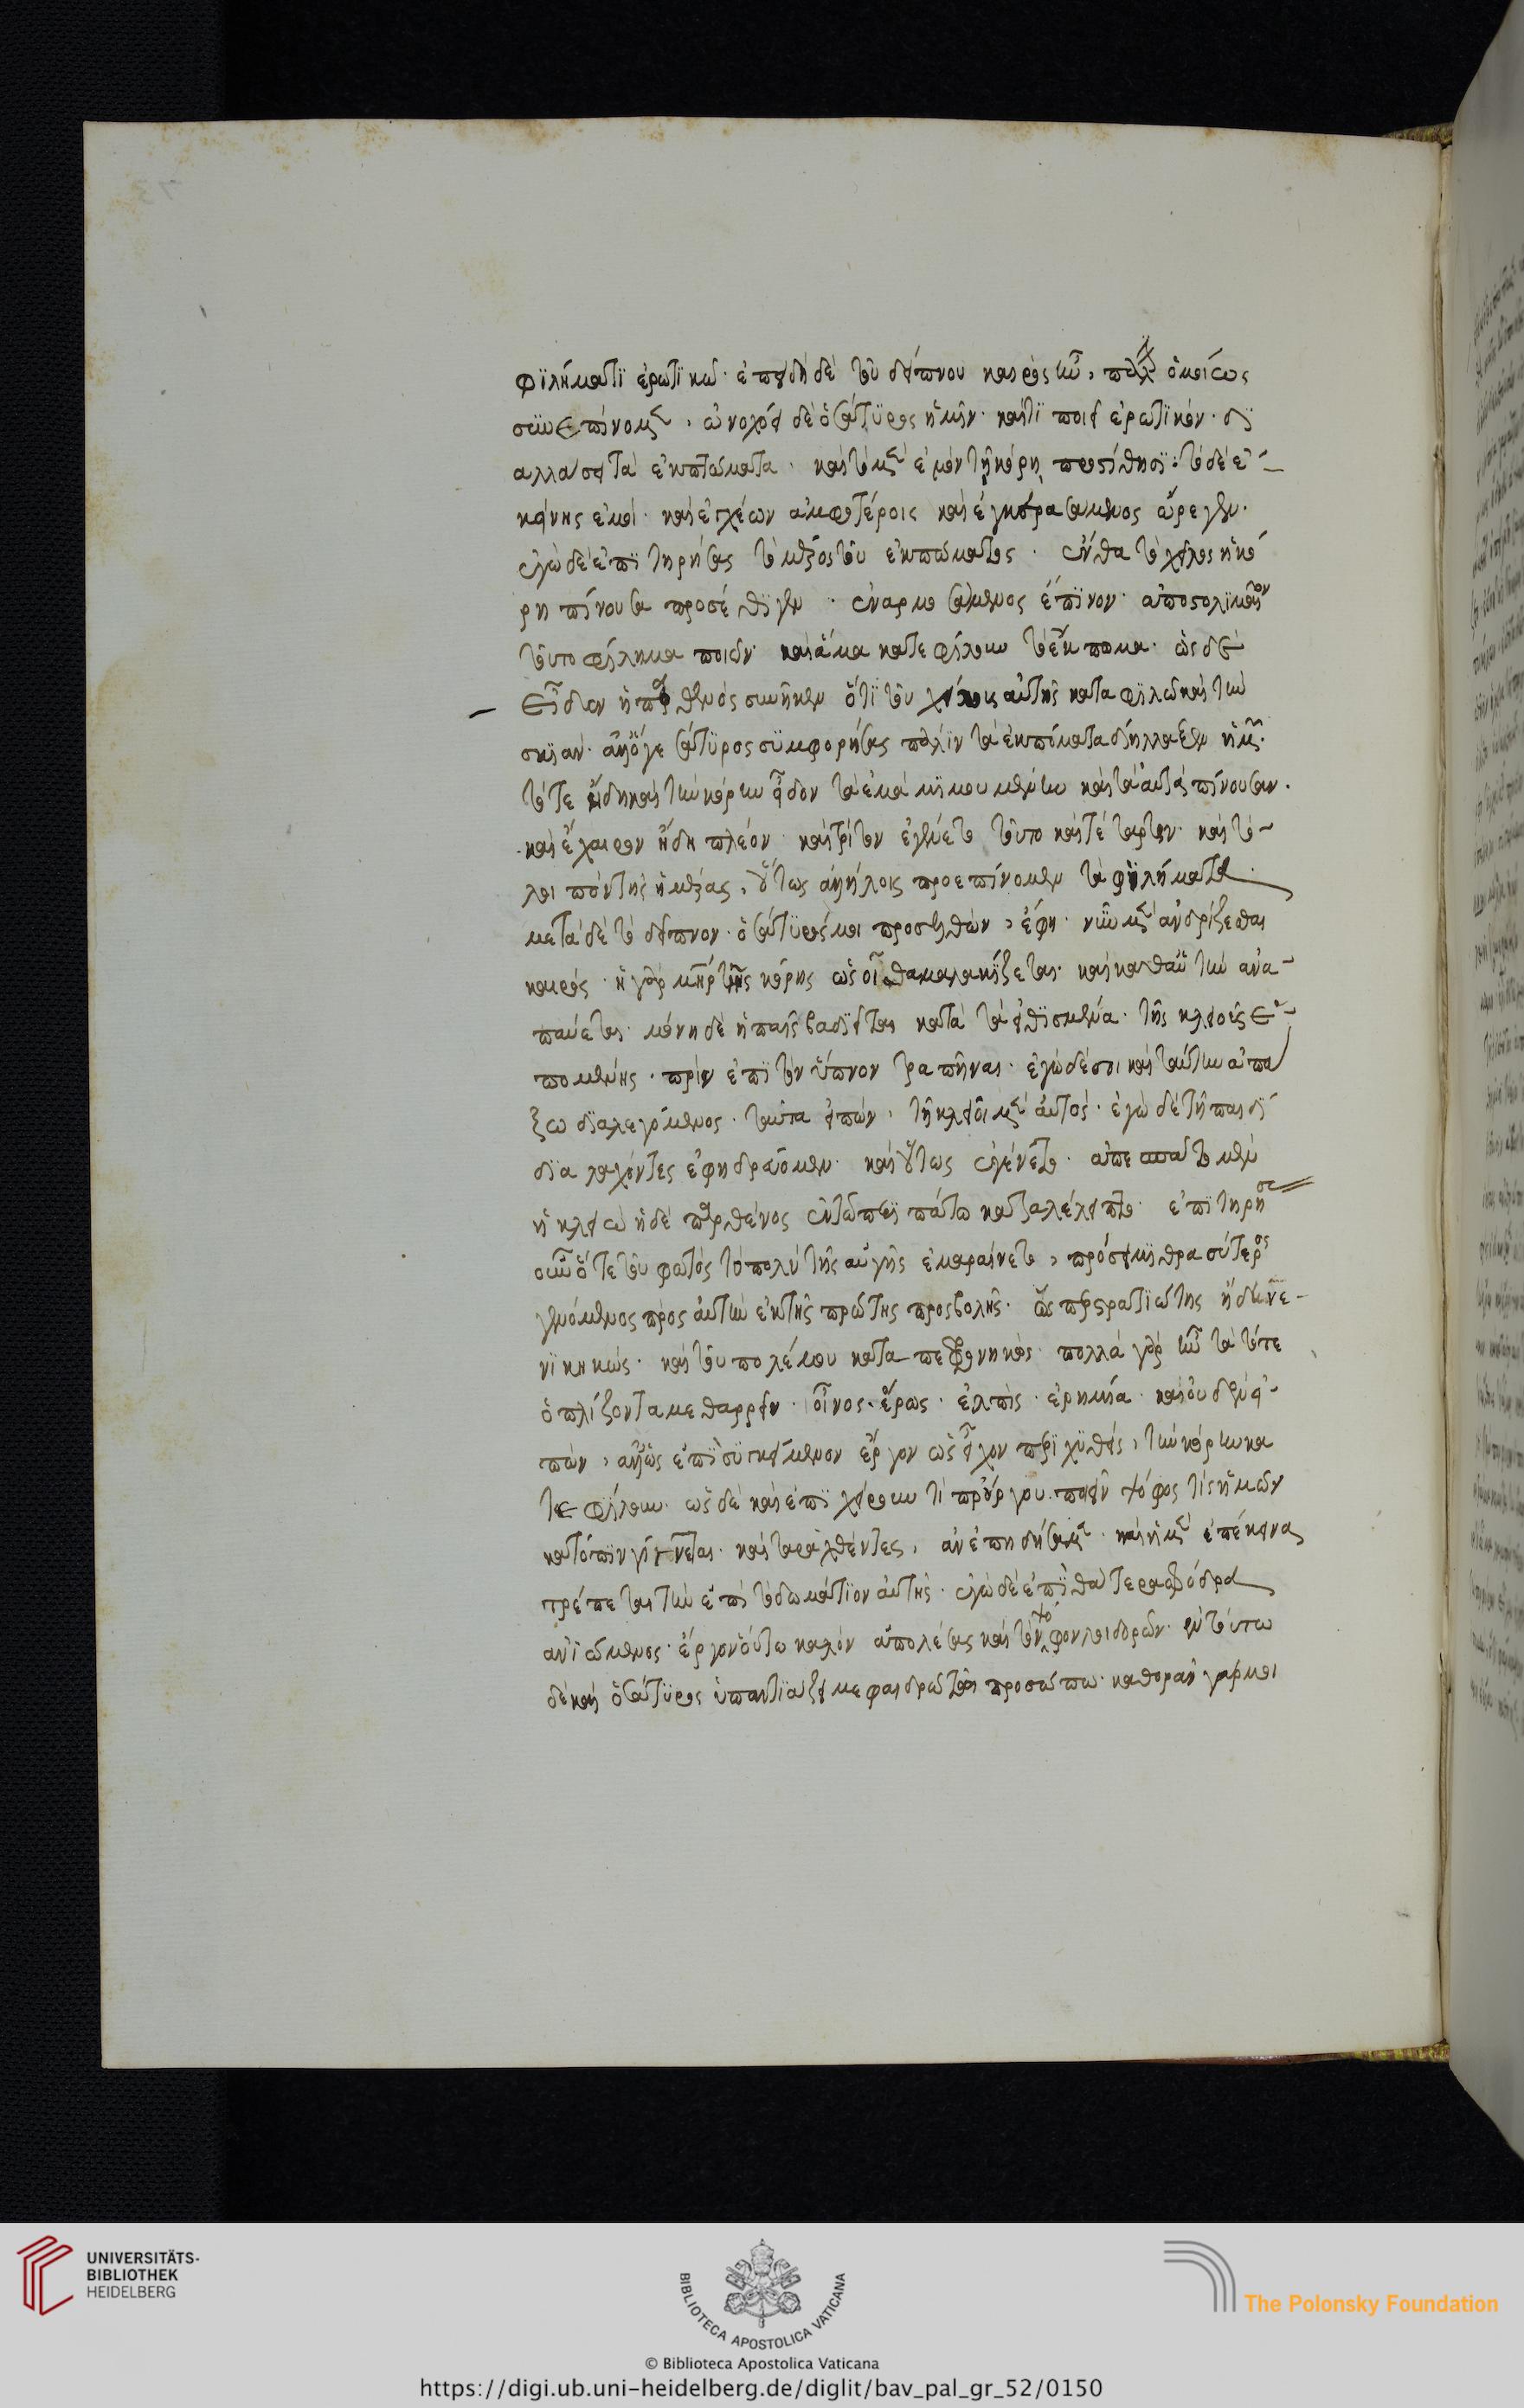 φϊλήματϊ ἐρωτϊκῶ· ἐπειδὴ δὲ τοῦ δείπνου καιρὸς ἦν, πάλιν ὁμοίως
συνεπίνομεν, ὠνοχόει δὲ ὁ σάτϋρος ἡμῖν· καί τϊ ποιεῖ ἐρωτϊκόν· δϊ
αλλάσει τὰ ἐκπώματα· καὶ τὸ μὲν ἐμὸν τῆ κόρη προστίθησϊ· τὸ δὲ ἐ
κείνης ἐμοί· καὶ ἐγχέων ἀμφοτέροις καὶ ἐγκερασάμενος ὤρεγεν·
ἐγὼ δὲ ἐπϊτηρήσας τὸ μέρος τοῦ ἐκπώματος· ἔνθα τὸ χεῖλος ἡ κό
ρη πίνουσα προσέθϊγεν· ἐναρμοσάμενος ἔπϊνον· ἀποστολϊμαῖον
τοῦτο φίλημα ποιῶν· καὶ ἅμα κατεφίλουν τὸ ἔκπωμα· ὡς δὲ
εἶδεν ἡ παρθένος συνῆκεν ὅτϊ τοῦ χείλους αὐτῆς καταφϊλῶ καὶ τὴν
σκϊάν· ἀλλ' ὅγε σάτϋρος συμφορήσας πάλϊν τὰ ἐκπώματα διήλλαξεν ἡμῖν·
τότε ἤδη καὶ τὴν κόρην εἶδον τὰ ἐμὰ μϊμουμένην καὶ τὰ αὐτὰ πίνουσαν·
καὶ ἔχαιρον ἤδη πλέον· καὶ τρίτον ἐγένετο τοῦτο καὶ τέταρτον· καὶ τὸ
λοιπὸν τῆς ἡμέρας, οὕτως ἀλλήλοις προεπίνομεν τὰ φϊλήματα·
μετὰ δὲ τὸ δεῖπνον· ὁ σάτϋρός μοι προσελθών, ἔφη· νῦν μὲν ἀνδρίζεσθαι
καιρός· ἡ γὰρ μήτηρ τῆς κόρης ὡς οἶσθα μαλακίζεται· καὶ καθ' αὑτὴν ἀνα
παύεται· μόνη δὲ ἡ παῖς βαδϊεῖται κατὰ τὰ εἰθϊσμένα· τῆς κλειοῦς ἑ
πομένης· πρὶν ἐπϊ τὸν ὕπνον τραπῆναι· ἐγὼ δέ σοι καὶ ταύτην ἀπά
ξω διαλεγόμενος· ταῦτα εἰπών, τῆ κλειοῖ μὲν αὐτός· ἐγὼ δὲ τῆ παιδϊ
διαλαχόντες ἐφηδραύομεν· καὶ οὕτως ἐγένετο· ἀπεσπάτο μὲν
ἡ κλειὼ ἡ δὲ παρθένος ἐν τῶ περϊπάτω καταλέλειπτο· ἐπϊτηρήσ
ουν ὅτε τοῦ φωτὸς τὸ πολὺ τῆς αὐγῆς ἐμαραίνετο, πρόσειμϊ θρασύτερος
γενόμενος πρὸς αὐτὴν ἐκ τῆς πρώτης προσβολῆς· ὥσπερ στρατϊώτης ἤδη νε
νϊκηκώς· καὶ τοῦ πολέμου καταπεφρονηκώς· πολλὰ γὰρ ἦν τὰ τότε
ὁπλίζοντά με θαρρεῖν· οἶνος· ἔρως· ἐλπὶς· ἐρημία· καὶ οὐδὲν εἰ
πών, ἀλλ' ὡς ἐπὶ συγκείμενον ἔργον ὡς εἶχον περϊχϋθείς, τὴν κόρην κα
τεφίλουν· ὡς δὲ καὶ ἐπϊχείρουν τὶ προὔργου ποιεῖν ψόφος τὶς ἡμῶν
κατόπϊν γίνεται· καὶ ταραχθέντες, ἀνεπηδήσαμεν· καὶ ἡ μὲν ἐπέκεινα
τρέπεται τὴν ἐπὶ τὸ δωμάτϊον αὐτῆς· ἐγὼ δὲ ἐπϊ θάτερα σφόδρα
ἀνϊώμενος· ἔργον οὕτω καλὸν ἀπολέσας καὶ τὸν ψόφον λοιδορῶν· ἐν τούτω
δὲ καὶ ὁ σάτϋρος ὑπαντϊάζει με φαιδρῶ τῶ προσώπω· καθορᾶν γάρ μοι
UNIVERSITÄTS-
BIBLIOTHEK
HEIDELBERG
BIBLIOTECA APOSTOLICA VATICANA
The Polonsky Foundation
© Biblioteca Apostolica Vaticana
https://digi.ub.uni-heidelberg.de/diglit/bav_pal_gr_52/0150